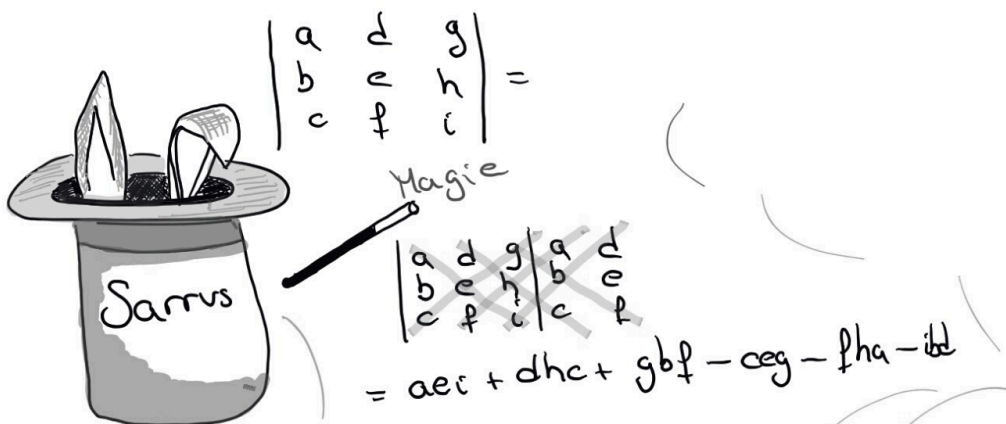 | a d g |
| b e h | =
| c f i |
Magie
Sarrus
| a d g | a d
| b e h | b e
| c f i | c f
= aei + dhc + gbf - ceg - fha - ibd